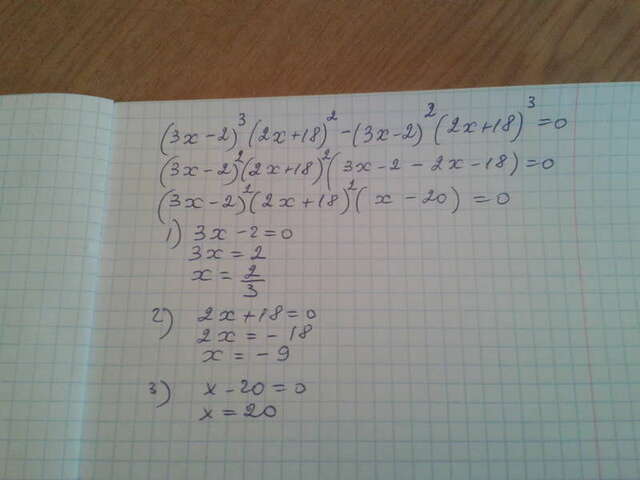 (3x-2)³(2x+18)²-(3x-2)²(2x+18)³=0
(3x-2)²(2x+18)²(3x-2-2x-18)=0
(3x-2)²(2x+18)²(x-20)=0
1) 3x-2=0
3x=2
x=2/3
2) 2x+18=0
2x=-18
x=-9
3) x-20=0
x=20